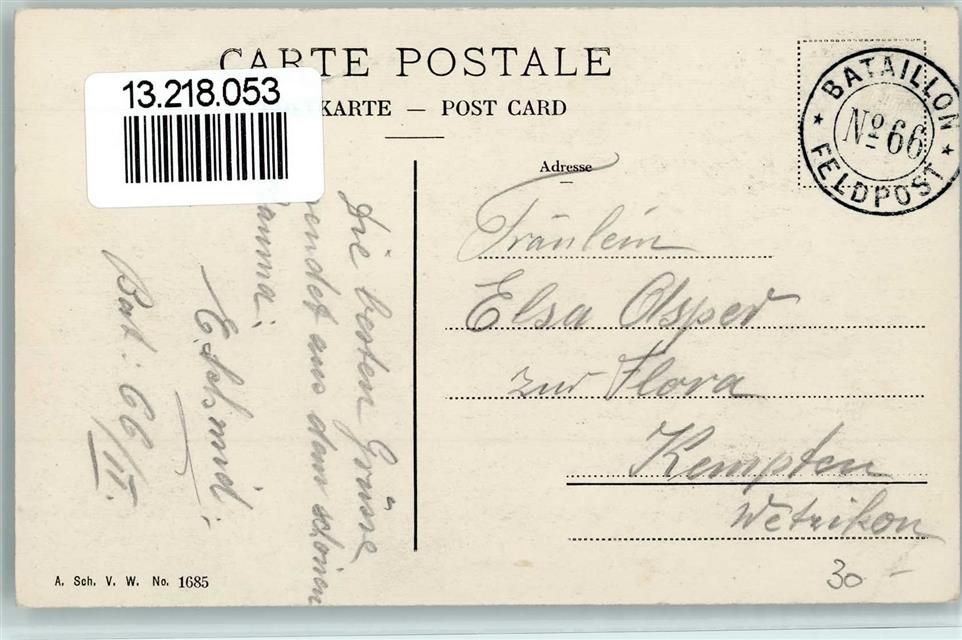 CARTE POSTALE
13.218.053
KARTE — POST CARD
BATAILLON
No 66
FELDPOST
Adresse
Fräulein
Elsa Asper
zur Flora
Kempten
Wetzikon
Die besten Grüsse
sendet aus dem schönen
E. Schmid.
Bat: 66/II.
A. Sch. V. W. No. 1685
30 -